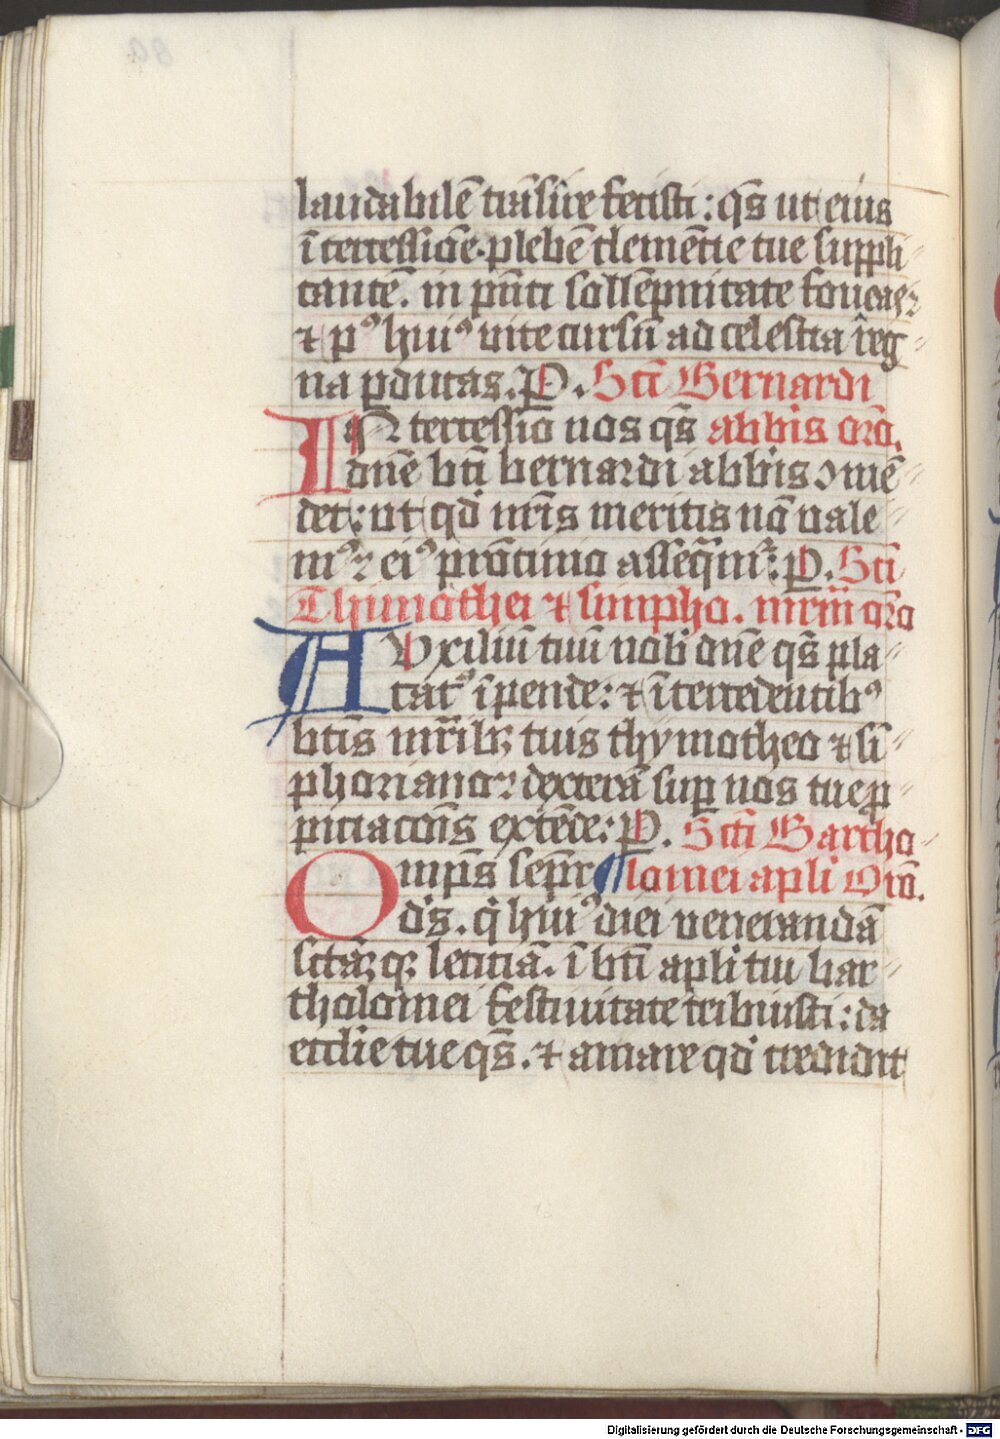 laudabilē trāſire feciſti : qs̄ ut eius
ītercessiōe . plebē clemētie tue suppli
cantē . in pn̄ti sollēpnitate foueas
⁊ pꝰ huiꝰ uite cursū ad celestia reg
na ꝑducas . P . Scī Bernardi
INtercessio nos qs̄ abbīs orō .
dn̄e btī bernardi abbīs ↄmē
det : ut qd̓ nr̄is meritis nō uale
mꝰ eiꝰ pr̄ocinio assequm̄r : P . Scī
Thimothei ⁊ simpho . mr̄m orō
AUxiliū tuū nob̄ dn̄e qs̄ pla
catꝰ īpende : ⁊ ītercedentibꝰ
btīs mr̄ibꝫ tuis thymotheo ⁊ si
phoriano dexterā suꝑ nos tue pro
piciacōnis extēde : P . Scī Bartho
Omps̄ sempr ¶ lomei apli Orō .
ds̄ . qi huiꝰ diei uenerandā
sctāꝫ qꝫ leticiā . ī btī apli tui bar
tholomei festiuitate tribuisti : da
ecclie tue qs̄ . ⁊ amare qd̓ credidit
Digitalisierung gefördert durch die Deutsche Forschungsgemeinschaft - DFG